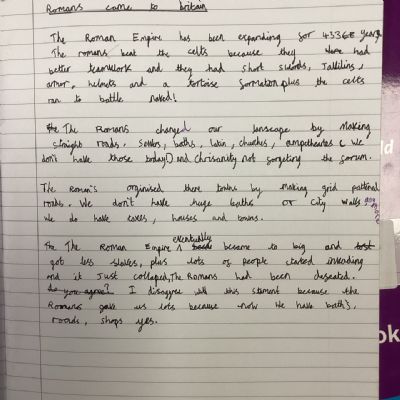 Romans came to britain
The Roman Empire has been expanding for years
The romans beat the celts because they had
better teamwork and they had short swords,
armor, helmets and a tortoise formation plus the celts
ran to battle naked!
The Romans changed our lanscape by making
straight roads, baths, latin, churches, (we
don't have those today) and not forgeting the forum.
The Roman's orginised there towns by making grid patterned
roads. We don't have huge baths or city walls,
we do have taxes, houses and towns.
The Roman Empire eventually became to big and
got less slaves, plus lots of people started invading
and it just collapsed, The Romans had been defeated.
I disagree with this because the
Romans gave us lots because now we have bath's,
roads, shops yes.
ld
ok